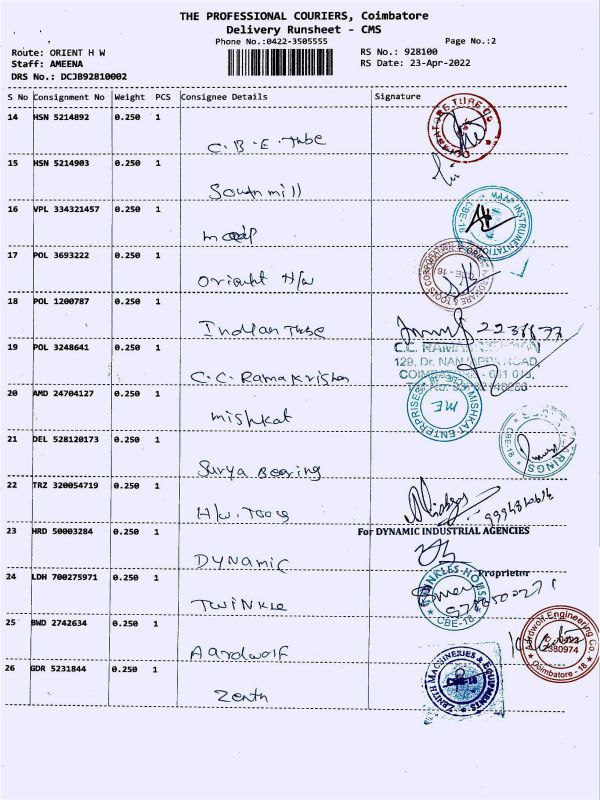 THE PROFESSIONAL COURIERS, Coimbatore
Delivery Runsheet - CMS
Phone No.:0422-3505555
Page No.:2
Route: ORIENT H W
RS No.: 928100
Staff: AMEENA
RS Date: 23-Apr-2022
DRS No.: DCJB92810002
S No Consignment No Weight PCS Consignee Details Signature
14 HSN 5214892 0.250 1
C.B.E. Tube
15 HSN 5214903 0.250 1
South mill
16 VPL 334321457 0.250 1
MAAP INSTRUMENTATION
CBE-18
17 POL 3693222 0.250 1
Orient H/w
CBE - 18
18 POL 1200787 0.250 1
Indian Tube
19 POL 3248641 0.250 1
C.C. Ramakrishn
C.C. RAMA
129, Dr. NANJAPPA ROAD,
20 AMD 24704127 0.250 1
mishkat
MISHKAT ENTERPRISES
CBE-18
ME
21 DEL 528120173 0.250 1
Surya Bearing
CBE-18
22 TRZ 320054719 0.250 1
H/w. Tools
23 HRD 50003284 0.250 1
For DYNAMIC INDUSTRIAL AGENCIES
DYNAMIC
Proprietor
24 LDH 700275971 0.250 1
TWINKLE
CBE-18
25 BWD 2742634 0.250 1
Aardwolf
Aardwolf Engineering Co.
2380974
Coimbatore - 18
26 GDR 5231844 0.250 1
Zenth
ZENITH MACHINERIES & EQUIPMENTS
CBE-18